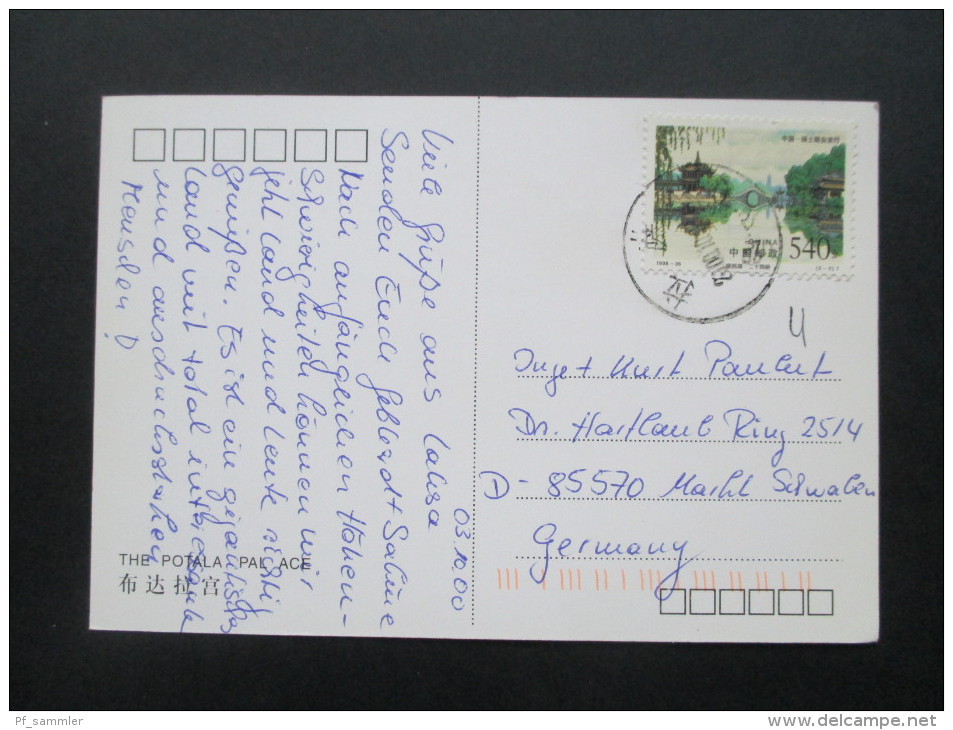 03.10.00
Viele Grüße aus Lahsa
Senden Euch Gebhard + Sabine
Nach anfänglichen Höhen-
Schwierigkeiten können wir
jetzt Land und Leute richtig
genießen. Es ist ein gigantisches
Land mit total interessante
und
Menschen!
THE POTALA PALACE
布达拉宫
中国邮政 CHINA
540
1998-26
4
Inge + Kurt
Dr. Hartlaub Ring 2514
D - 85570 Markt Schwaben
Germany
Pf_sammler
www.delcampe.net